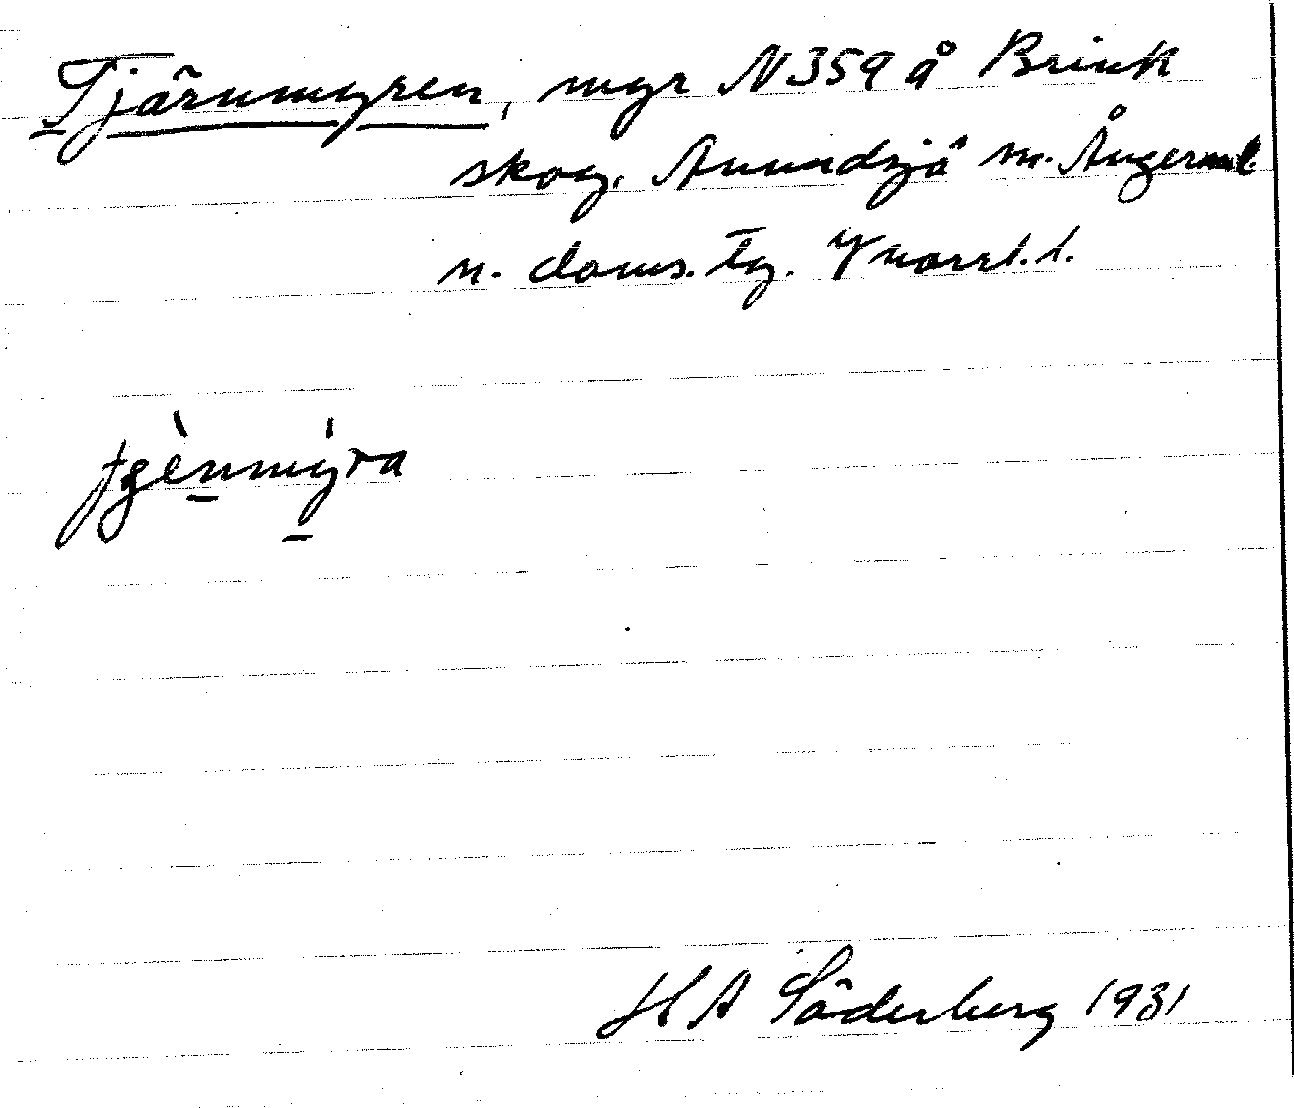 Tjärnmyren, myr N 359 å Brink
skog, Anundsjö sn. Ångerml.
n. doms. tg. Y norrl. l.
H A Söderberg 1931